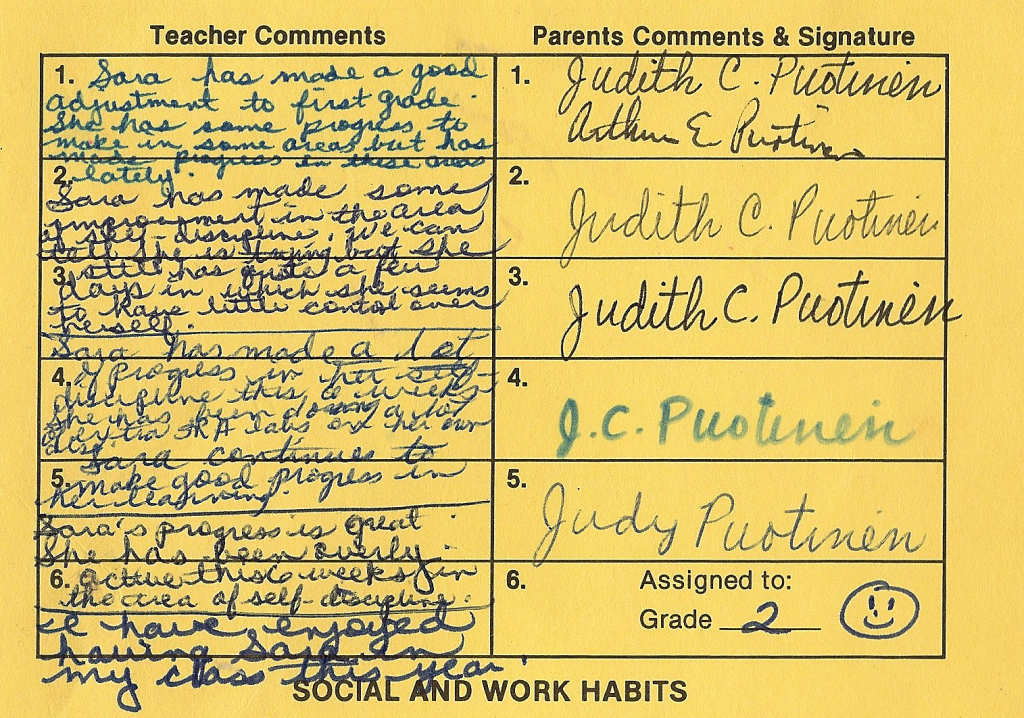 Teacher Comments
Parents Comments & Signature
1. Sara has made a good
adjustment to first grade.
She has some progress to
make in some areas but has
made progress in these areas
lately.
2.
Sara has made some
improvement in the area
of self-discipline. We can
tell she is trying but she
still has quite a few
3.
days in which she seems
to have little control over
herself.
Sara has made a lot
4.
of progress in her self-
discipline this 6 weeks.
She has been doing a lot
SRA labs on her own
Sara continues to
5. make good progress in
her learning.
Sara's progress is great.
She has been overly
6. active this 6 weeks in
the area of self-discipline.
I have enjoyed
having Sara in
my class this year.
1. Judith C. Puotinen
Arthur E. Puotinen
2.
Judith C. Puotinen
3.
Judith C. Puotinen
4.
J.C. Puotinen
5.
Judy Puotinen
6. Assigned to:
Grade 2
SOCIAL AND WORK HABITS